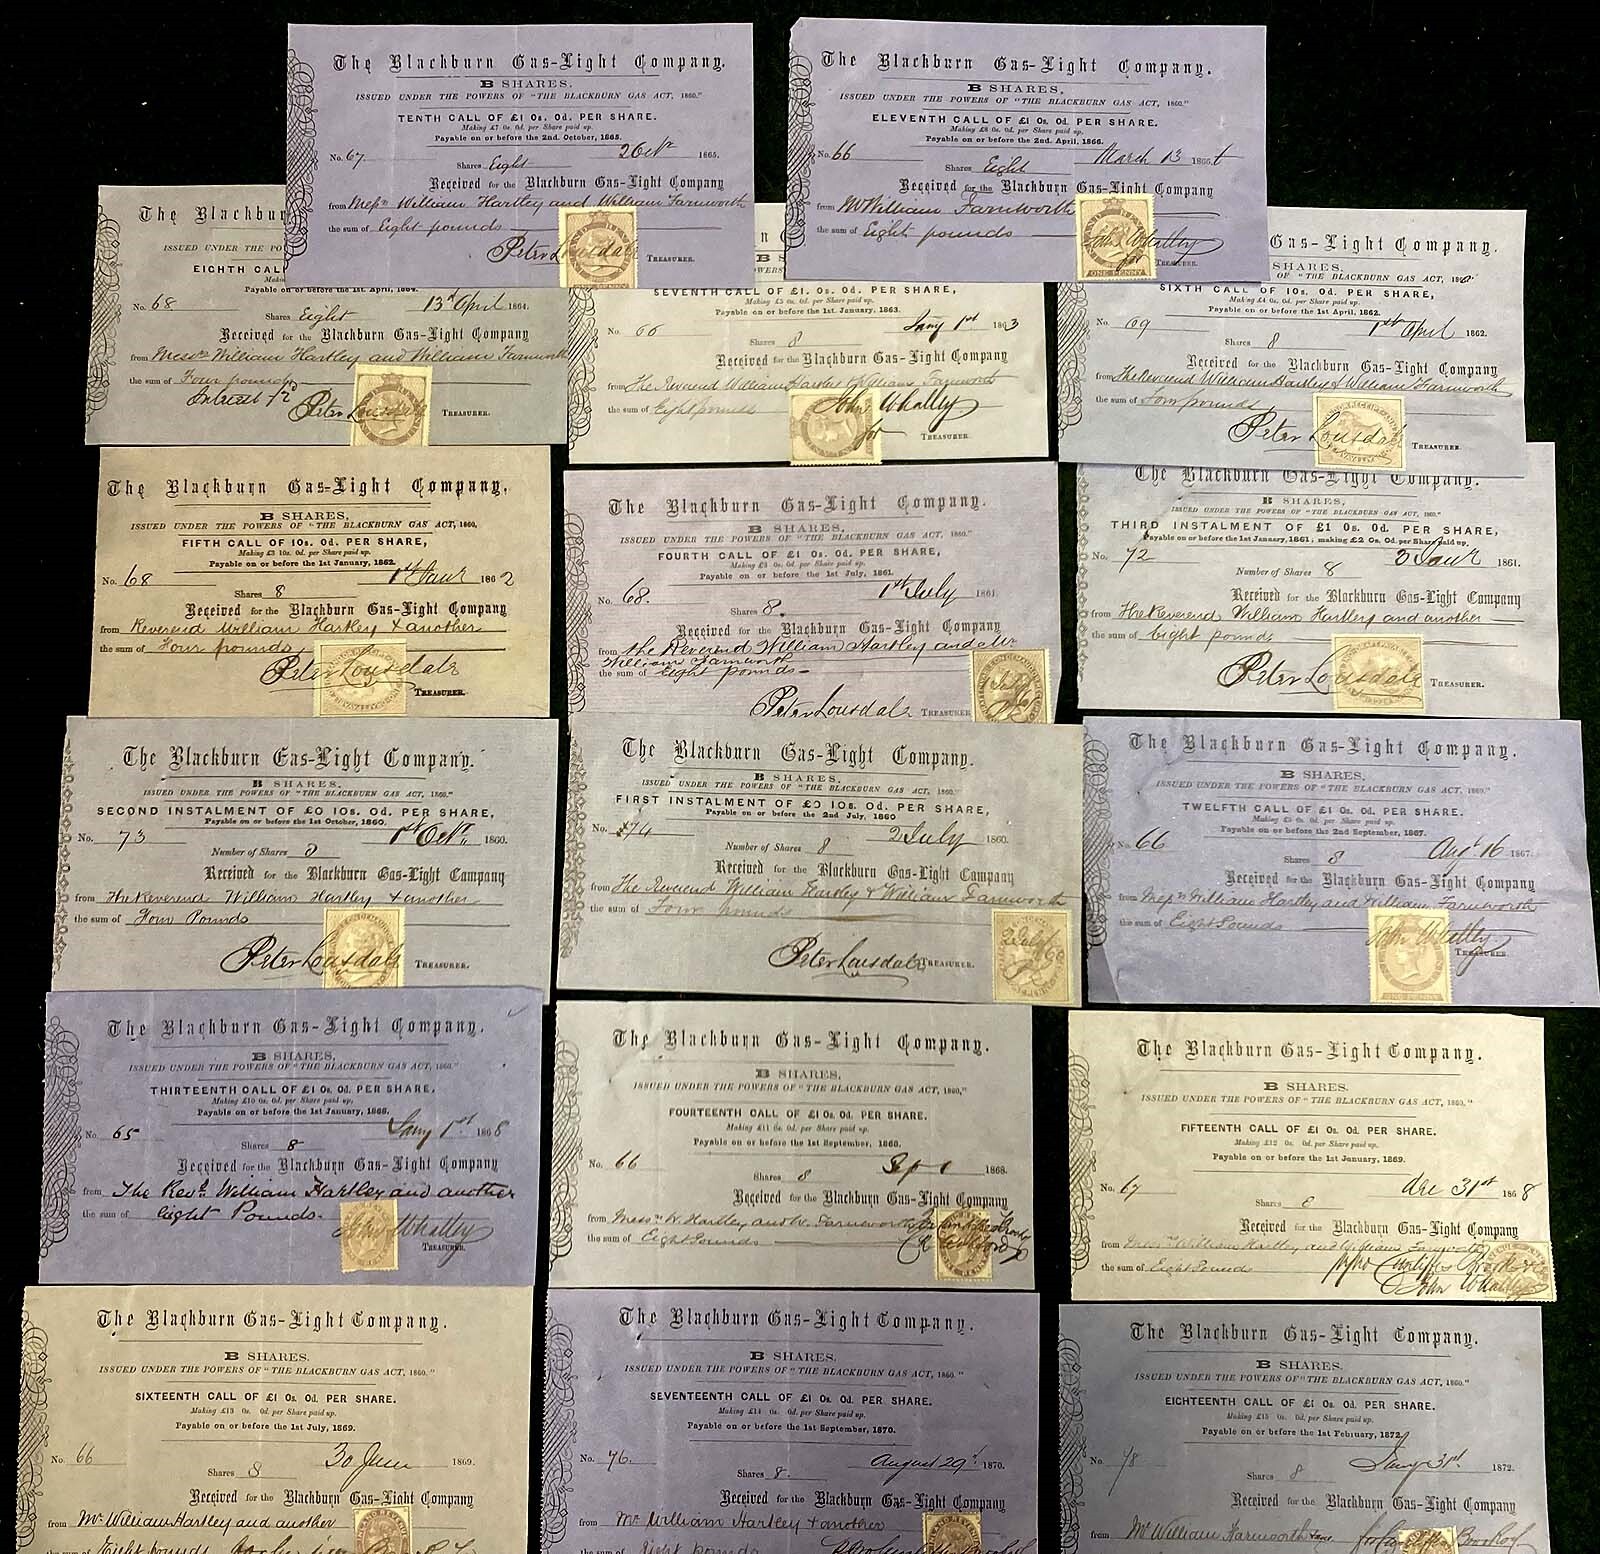 The Blackburn Gas-Light Company.
B SHARES,
ISSUED UNDER THE POWERS OF "THE BLACKBURN GAS ACT, 1860."
TENTH CALL OF £1 0s. 0d. PER SHARE.
Making £7 0s. 0d. per Share paid up.
Payable on or before the 2nd. October, 1865.
No. 67 2 Octr 1865.
Shares Eight
Received for the Blackburn Gas-Light Company
from Messrs William Hartley and William Farnworth
the sum of Eight pounds
Peter Lousdale TREASURER.
The Blackburn Gas-Light Company.
B SHARES,
ISSUED UNDER THE POWERS OF "THE BLACKBURN GAS ACT, 1860."
ELEVENTH CALL OF £1 0s. 0d. PER SHARE.
Making £8 0s. 0d. per Share paid up.
Payable on or before the 2nd. April, 1866.
No. 66 March 13 1866.
Shares Eight
Received for the Blackburn Gas-Light Company
from Mr William Farnworth
the sum of Eight pounds
John Whalley
for TREASURER.
ONE PENNY
The Blackbur
ISSUED UNDER THE PO
EIGHTH CALL
Payable on or before the 1st. April, 1864.
No. 68 13th April 1864.
Shares Eight
Received for the Blackburn Gas-Light Company
from Messrs William Hartley and William Farnworth
the sum of Four pounds
Interest
Peter Lousdale TREASURER.
SEVENTH CALL OF £1. 0s. 0d. PER SHARE,
Making £5 0s. 0d. per Share paid up.
Payable on or before the 1st. January, 1863.
No. 66 Jany 1st 1863
Shares 8
Received for the Blackburn Gas-Light Company
from The Reverend William Hartley & William Farnworth
the sum of Eight pounds
John Whalley
for TREASURER.
Gas-Light Company.
SHARES,
OF "THE BLACKBURN GAS ACT, 1860."
SIXTH CALL OF 10s. 0d. PER SHARE,
Making £4 0s. 0d. per Share paid up.
Payable on or before the 1st April, 1862.
No. 69 1st April 1862.
Shares 8
Received for the Blackburn Gas-Light Company
from The Reverend William Hartley & William Farnworth
the sum of Four pounds
Peter Lousdale TREASURER.
The Blackburn Gas-Light Company.
B SHARES,
ISSUED UNDER THE POWERS OF "THE BLACKBURN GAS ACT, 1860,
FIFTH CALL OF 10s. 0d. PER SHARE,
Making £3 10s. 0d. per Share paid up.
Payable on or before the 1st January, 1862.
No. 68 1st Janr 1862
Shares 8
Received for the Blackburn Gas-Light Company
from Reverend William Hartley & another
the sum of Four pounds
Peter Lousdale
TREASURER.
The Blackburn Gas-Light Company.
B SHARES,
ISSUED UNDER THE POWERS OF "THE BLACKBURN GAS ACT, 1860."
FOURTH CALL OF £1 0s. 0d. PER SHARE,
Making £3 0s. 0d. per Share paid up.
Payable on or before the 1st July, 1861.
No. 68. 1st July 1861
Shares 8.
Received for the Blackburn Gas-Light Company
from the Reverend William Hartley and Mr
William Farnworth
the sum of Eight pounds
Peter Lousdale TREASURER
The Blackburn Gas-Light Company.
B SHARES,
ISSUED UNDER THE POWERS OF "THE BLACKBURN GAS ACT, 1860."
THIRD INSTALMENT OF £1 0s. 0d. PER SHARE,
Payable on or before the 1st January, 1861; making £2 0s. 0d. per Share paid up,
No. 72 3 Janr 1861.
Number of Shares 8
Received for the Blackburn Gas-Light Company
from The Reverend William Hartley and another
the sum of Eight pounds
Peter Lousdale TREASURER.
The Blackburn Gas-Light Company.
B SHARES,
ISSUED UNDER THE POWERS OF "THE BLACKBURN GAS ACT, 1860."
SECOND INSTALMENT OF £0 10s. 0d. PER SHARE,
Payable on or before the 1st October, 1860.
No. 73 1st Octr. 1860.
Number of Shares 8
Received for the Blackburn Gas-Light Company
from The Reverend William Hartley & another
the sum of Four Pounds
Peter Lousdale TREASURER.
The Blackburn Gas-Light Company.
B SHARES,
ISSUED UNDER THE POWERS OF "THE BLACKBURN GAS ACT, 1860."
FIRST INSTALMENT OF £0 10s. 0d. PER SHARE,
Payable on or before the 2nd July, 1860
No. 74 2 July 1860.
Number of Shares 8
Received for the Blackburn Gas-Light Company
from The Reverend William Hartley & William Farnworth
the sum of Four pounds
Peter Lousdale TREASURER.
The Blackburn Gas-Light Company.
B SHARES,
ISSUED UNDER THE POWERS OF "THE BLACKBURN GAS ACT, 1860."
TWELFTH CALL OF £1 0s. 0d. PER SHARE.
Making £9 0s. 0d. per Share paid up.
Payable on or before the 2nd September, 1867.
No. 66 Augt. 16 1867.
Shares 8
Received for the Blackburn Gas-Light Company
from Messrs William Hartley and William Farnworth
the sum of Eight Pounds
John Whalley
TREASURER.
ONE PENNY
The Blackburn Gas-Light Company.
B SHARES,
ISSUED UNDER THE POWERS OF "THE BLACKBURN GAS ACT, 1860."
THIRTEENTH CALL OF £1 0s. 0d. PER SHARE,
Making £10 0s. 0d. per Share paid up,
Payable on or before the 1st January, 1868.
No. 65 Jany 1st. 1868
Shares 8
Received for the Blackburn Gas-Light Company
from The Revd. William Hartley and another
the sum of Eight Pounds.
John Whalley
TREASURER.
The Blackburn Gas-Light Company.
B SHARES,
ISSUED UNDER THE POWERS OF "THE BLACKBURN GAS ACT, 1860,"
FOURTEENTH CALL OF £1 0s. 0d. PER SHARE.
Making £11 0s. 0d. per Share paid up.
Payable on or before the 1st September, 1868.
No. 66 Sept 1 1868.
Shares 8
Received for the Blackburn Gas-Light Company
from Messrs W. Hartley and W. Farnworth
the sum of Eight Pounds
The Blackburn Gas-Light Company.
B SHARES.
ISSUED UNDER THE POWERS OF "THE BLACKBURN GAS ACT, 1860,"
FIFTEENTH CALL OF £1 0s. 0d. PER SHARE.
Making £12 0s. 0d. per Share paid up,
Payable on or before the 1st January, 1869.
No. 67 Dec 31st 1868
Shares 8
Received for the Blackburn Gas-Light Company
from Messrs William Hartley and William Farnworth
the sum of Eight Pounds
John Whalley
The Blackburn Gas-Light Company.
B SHARES.
ISSUED UNDER THE POWERS OF "THE BLACKBURN GAS ACT, 1860."
SIXTEENTH CALL OF £1 0s. 0d. PER SHARE.
Making £13 0s. 0d. per Share paid up.
Payable on or before the 1st July, 1869.
No. 66 30 June 1869.
Shares 8
Received for the Blackburn Gas-Light Company
from Mr William Hartley and another
the sum of Eight pounds
The Blackburn Gas-Light Company.
B SHARES.
ISSUED UNDER THE POWERS OF "THE BLACKBURN GAS ACT, 1860."
SEVENTEENTH CALL OF £1 0s. 0d. PER SHARE.
Making £14 0s. 0d. per Share paid up.
Payable on or before the 1st September, 1870.
No. 76. August 29th. 1870.
Shares 8.
Received for the Blackburn Gas-Light Company
from Mr William Hartley & another
the sum of Eight pounds
The Blackburn Gas-Light Company.
B SHARES.
ISSUED UNDER THE POWERS OF "THE BLACKBURN GAS ACT, 1860."
EIGHTEENTH CALL OF £1 0s. 0d. PER SHARE.
Making £15 0s. 0d. per Share paid up,
Payable on or before the 1st February, 1872.
No. 78 Jany 31st. 1872.
Shares 8
Received for the Blackburn Gas-Light Company
from Mr William Farnworth